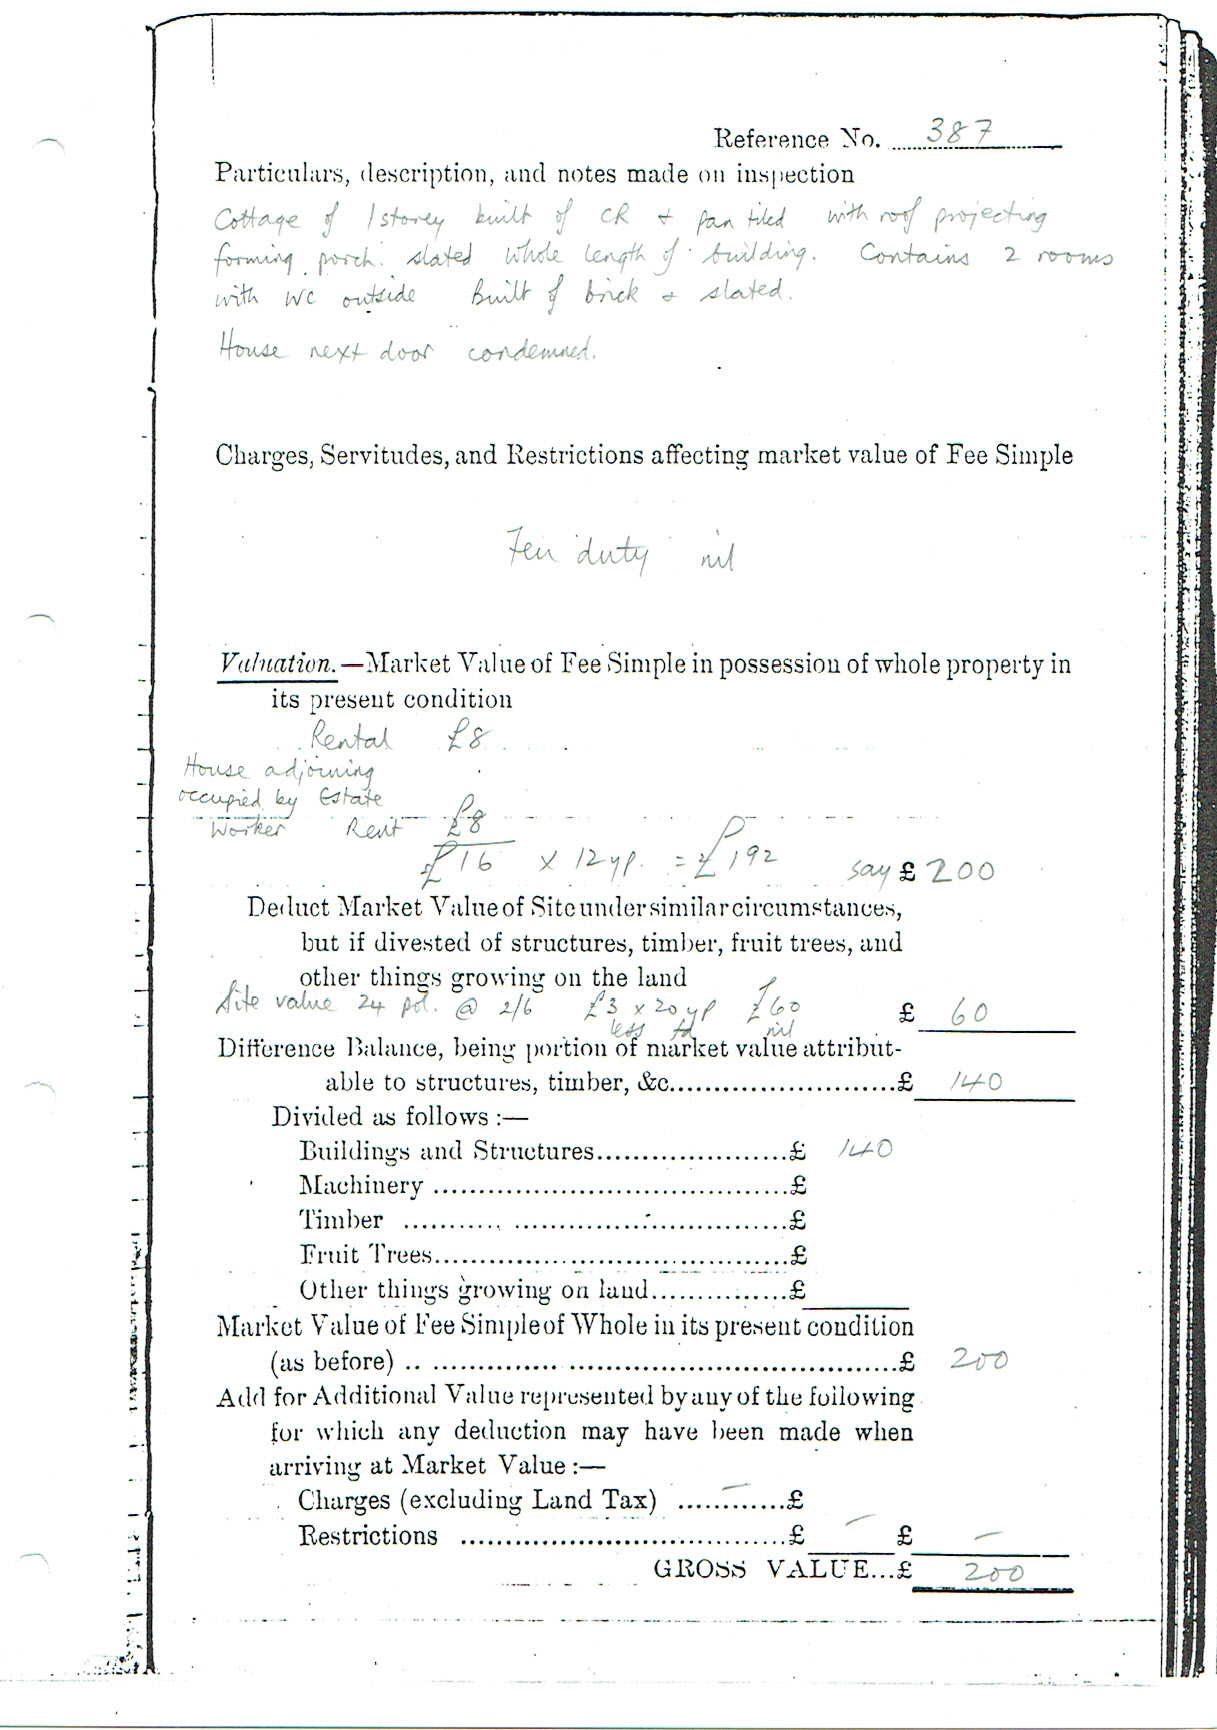 Reference No. 387
Particulars, description, and notes made on inspection
Cottage of 1 storey built of CR + pan tiled with roof projecting
forming porch. slated whole length of building. Contains 2 rooms
with WC outside Built of brick + slated.
House next door condemned.
Charges, Servitudes, and Restrictions affecting market value of Fee Simple
Feu duty nil
Valuation.—Market Value of Fee Simple in possession of whole property in
its present condition
Rental £8
House adjoining
occupied by Estate
Worker Rent £8
£16 x 12 yp. = £192 say £ 200
Deduct Market Value of Site under similar circumstances,
but if divested of structures, timber, fruit trees, and
other things growing on the land
Site value 24 pol. @ 2/6 £3 x 20 yp £60 £ 60
less fd nil
Difference Balance, being portion of market value attribut-
able to structures, timber, &c..............................£ 140
Divided as follows :—
Buildings and Structures......................£ 140
Machinery ........................................£
Timber ........................................£
Fruit Trees........................................£
Other things growing on land................£
Market Value of Fee Simple of Whole in its present condition
(as before) .. ....................................................£ 200
Add for Additional Value represented by any of the following
for which any deduction may have been made when
arriving at Market Value :—
Charges (excluding Land Tax) ............£ –
Restrictions ....................................£ – £ –
GROSS VALUE...£ 200